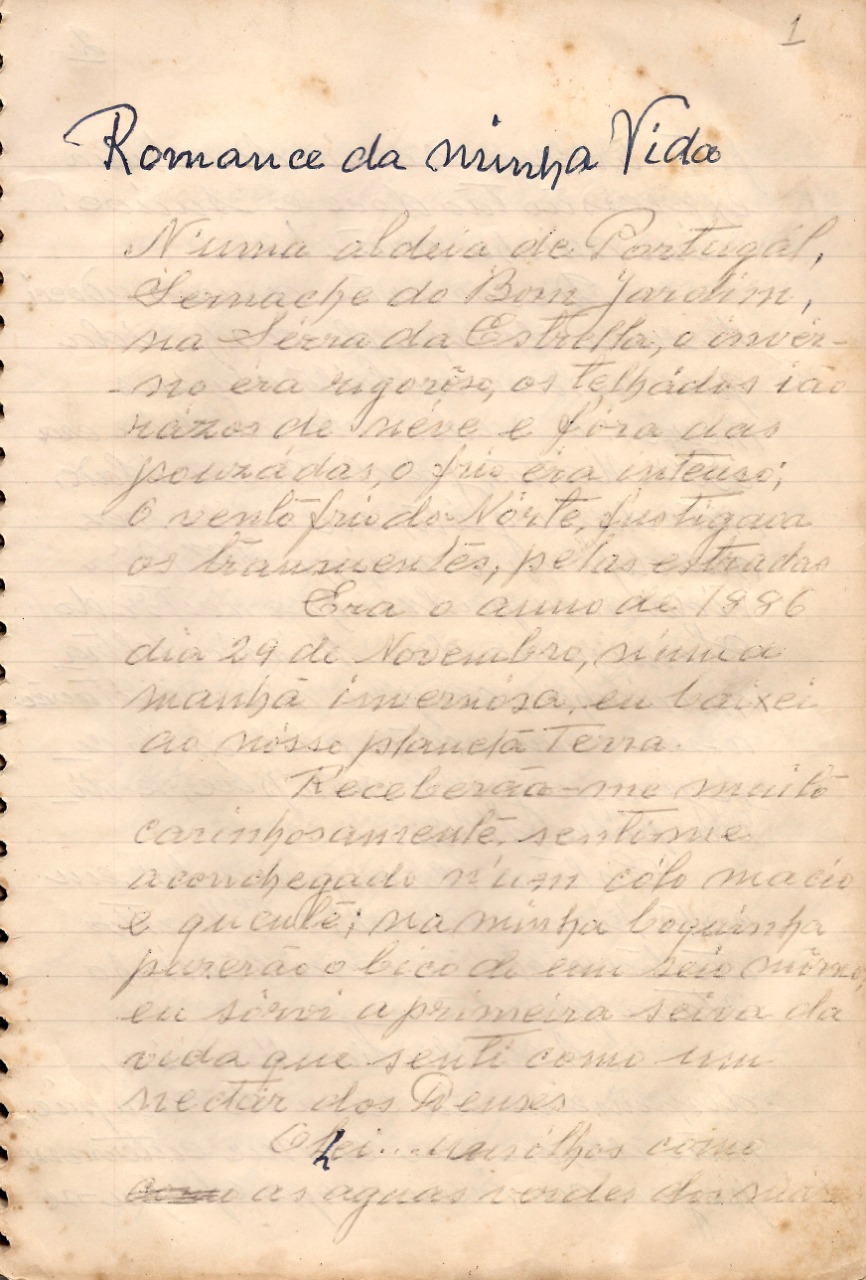 1
Romance da minha Vida
N'uma aldeia de Portugál,
Sernache do Bom Jardim,
na Sérra da Estrella, o invér-
-no éra rigorôso, os telhádos ião
rázos de néve e fóra das
pouzádas, o frio éra intenso;
O vento frio do Nórte, fustigava
os transuentes, pelas estradas
Era o anno de 1886
dia 29 de Novembro, n'uma
manhã invernósa, eu baixei
ao nósso planeta Terra.
Receberão-me muito
carinhosamente, senti-me
aconchegado n'um cólo macio
e quente; na minha boquinha
puzerão o bico de um seio môrno,
eu sórvi a primeira seiva da
vida que senti como um
nectár dos Deuses
Olhei... uns ólhos como
as aguas verdes do már